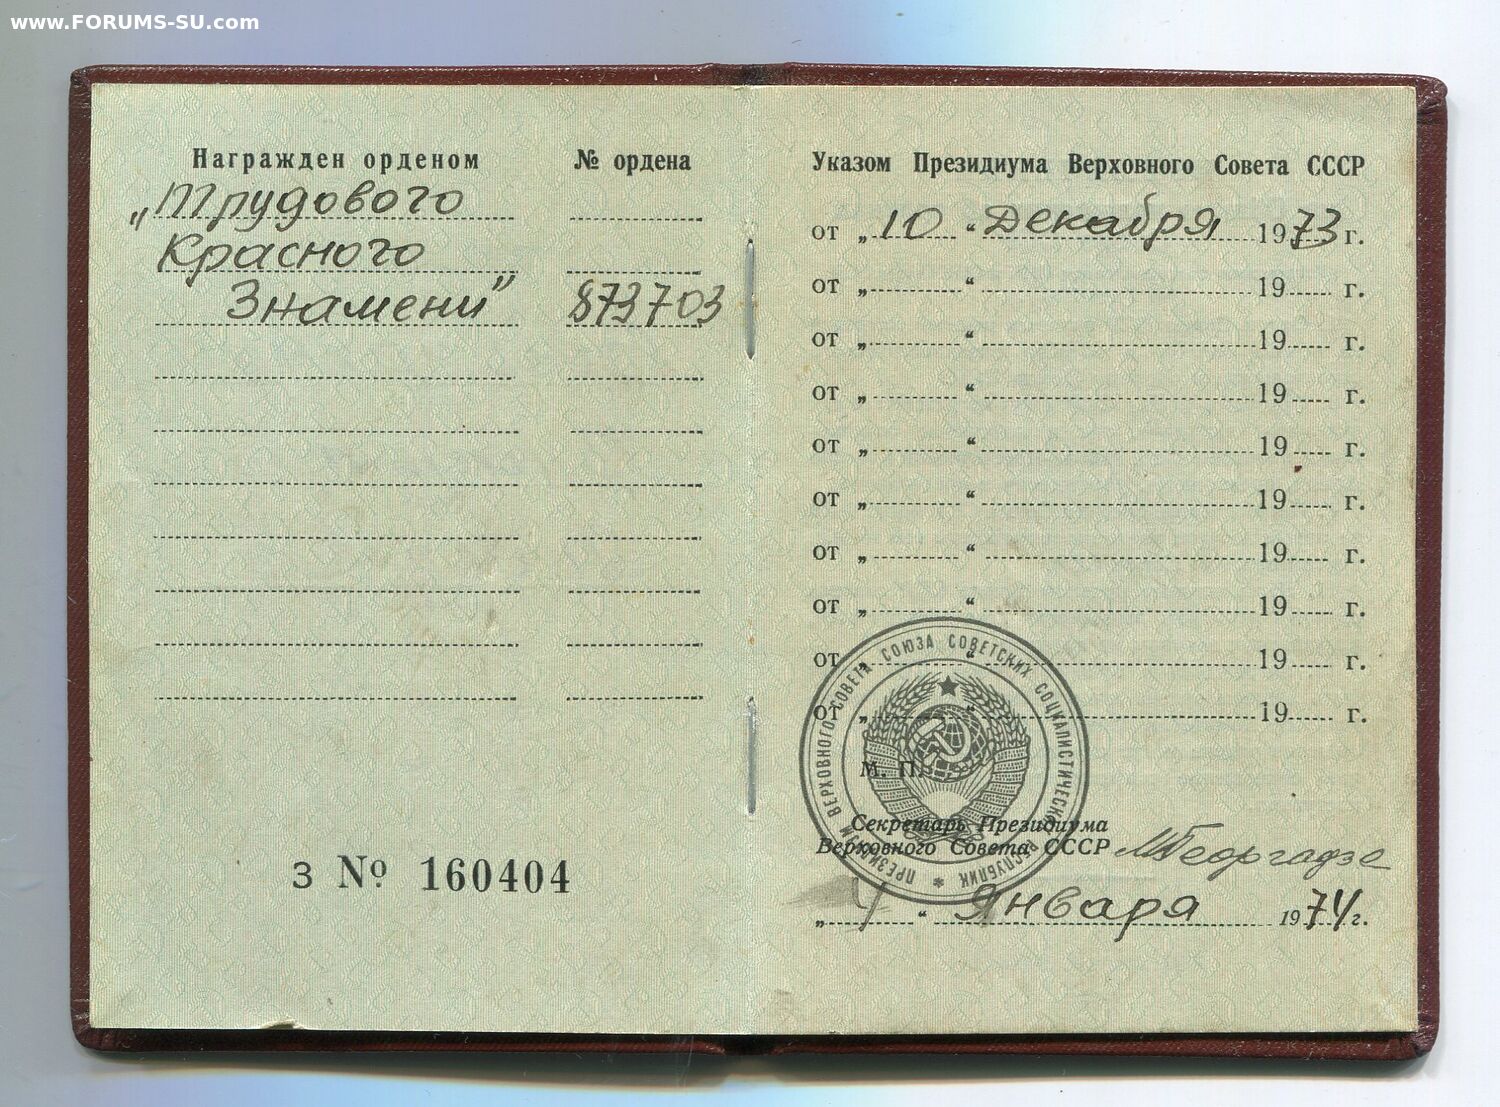 www.FORUMS-SU.com
Награжден орденом
№ ордена
„Трудового
Красного
Знамени"
873703
З № 160404
Указом Президиума Верховного Совета СССР
от „ 10 “ Декабря 1973 г.
от „ “ 19 г.
от „ “ 19 г.
от „ “ 19 г.
от „ “ 19 г.
от „ “ 19 г.
от „ “ 19 г.
от „ “ 19 г.
от „ “ 19 г.
от „ “ 19 г.
ПРЕЗИДИУМ ВЕРХОВНОГО СОВЕТА СОЮЗА СОВЕТСКИХ СОЦИАЛИСТИЧЕСКИХ РЕСПУБЛИК *
М. П.
Секретарь Президиума
Верховного Совета СССР МГеоргадзе
„ 4 “ Января 1974 г.